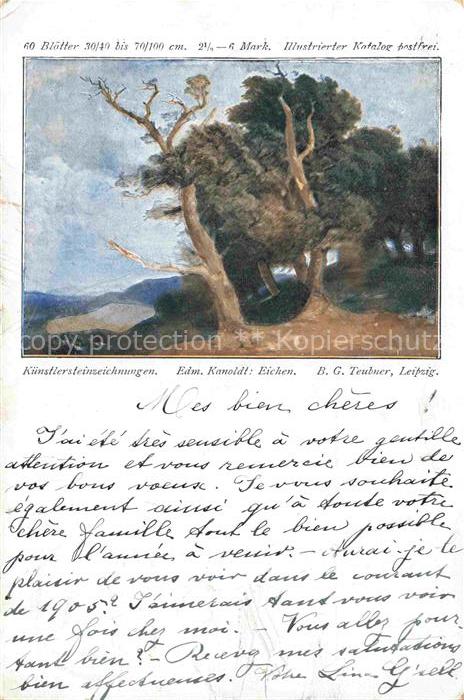 60 Blätter 30/40 bis 70/100 cm. 2½—6 Mark. Illustrierter Katalog postfrei.
copy protection watermark - copy protection watermark
Künstlersteinzeichnungen. Edm. Kanoldt: Eichen. B. G. Teubner, Leipzig.
Mes bien chères !
J'ai été très sensible à votre gentille
attention et vous remercie bien de
vos bons voeux. Je vous souhaite
également ainsi qu'à toute votre
chère famille tout le bien possible
pour l'année à venir. - Aurai-je le
plaisir de vous voir dans le courant
de 1905? J'aimerais tant vous voir
une fois chez moi. - Vous allez pour-
tant bien? - Recevez mes salutations
bien affectueuses. Votre Lina G'sell